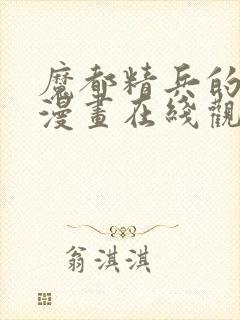 魔都精兵的
漫畫在綫觀
翁淇淇